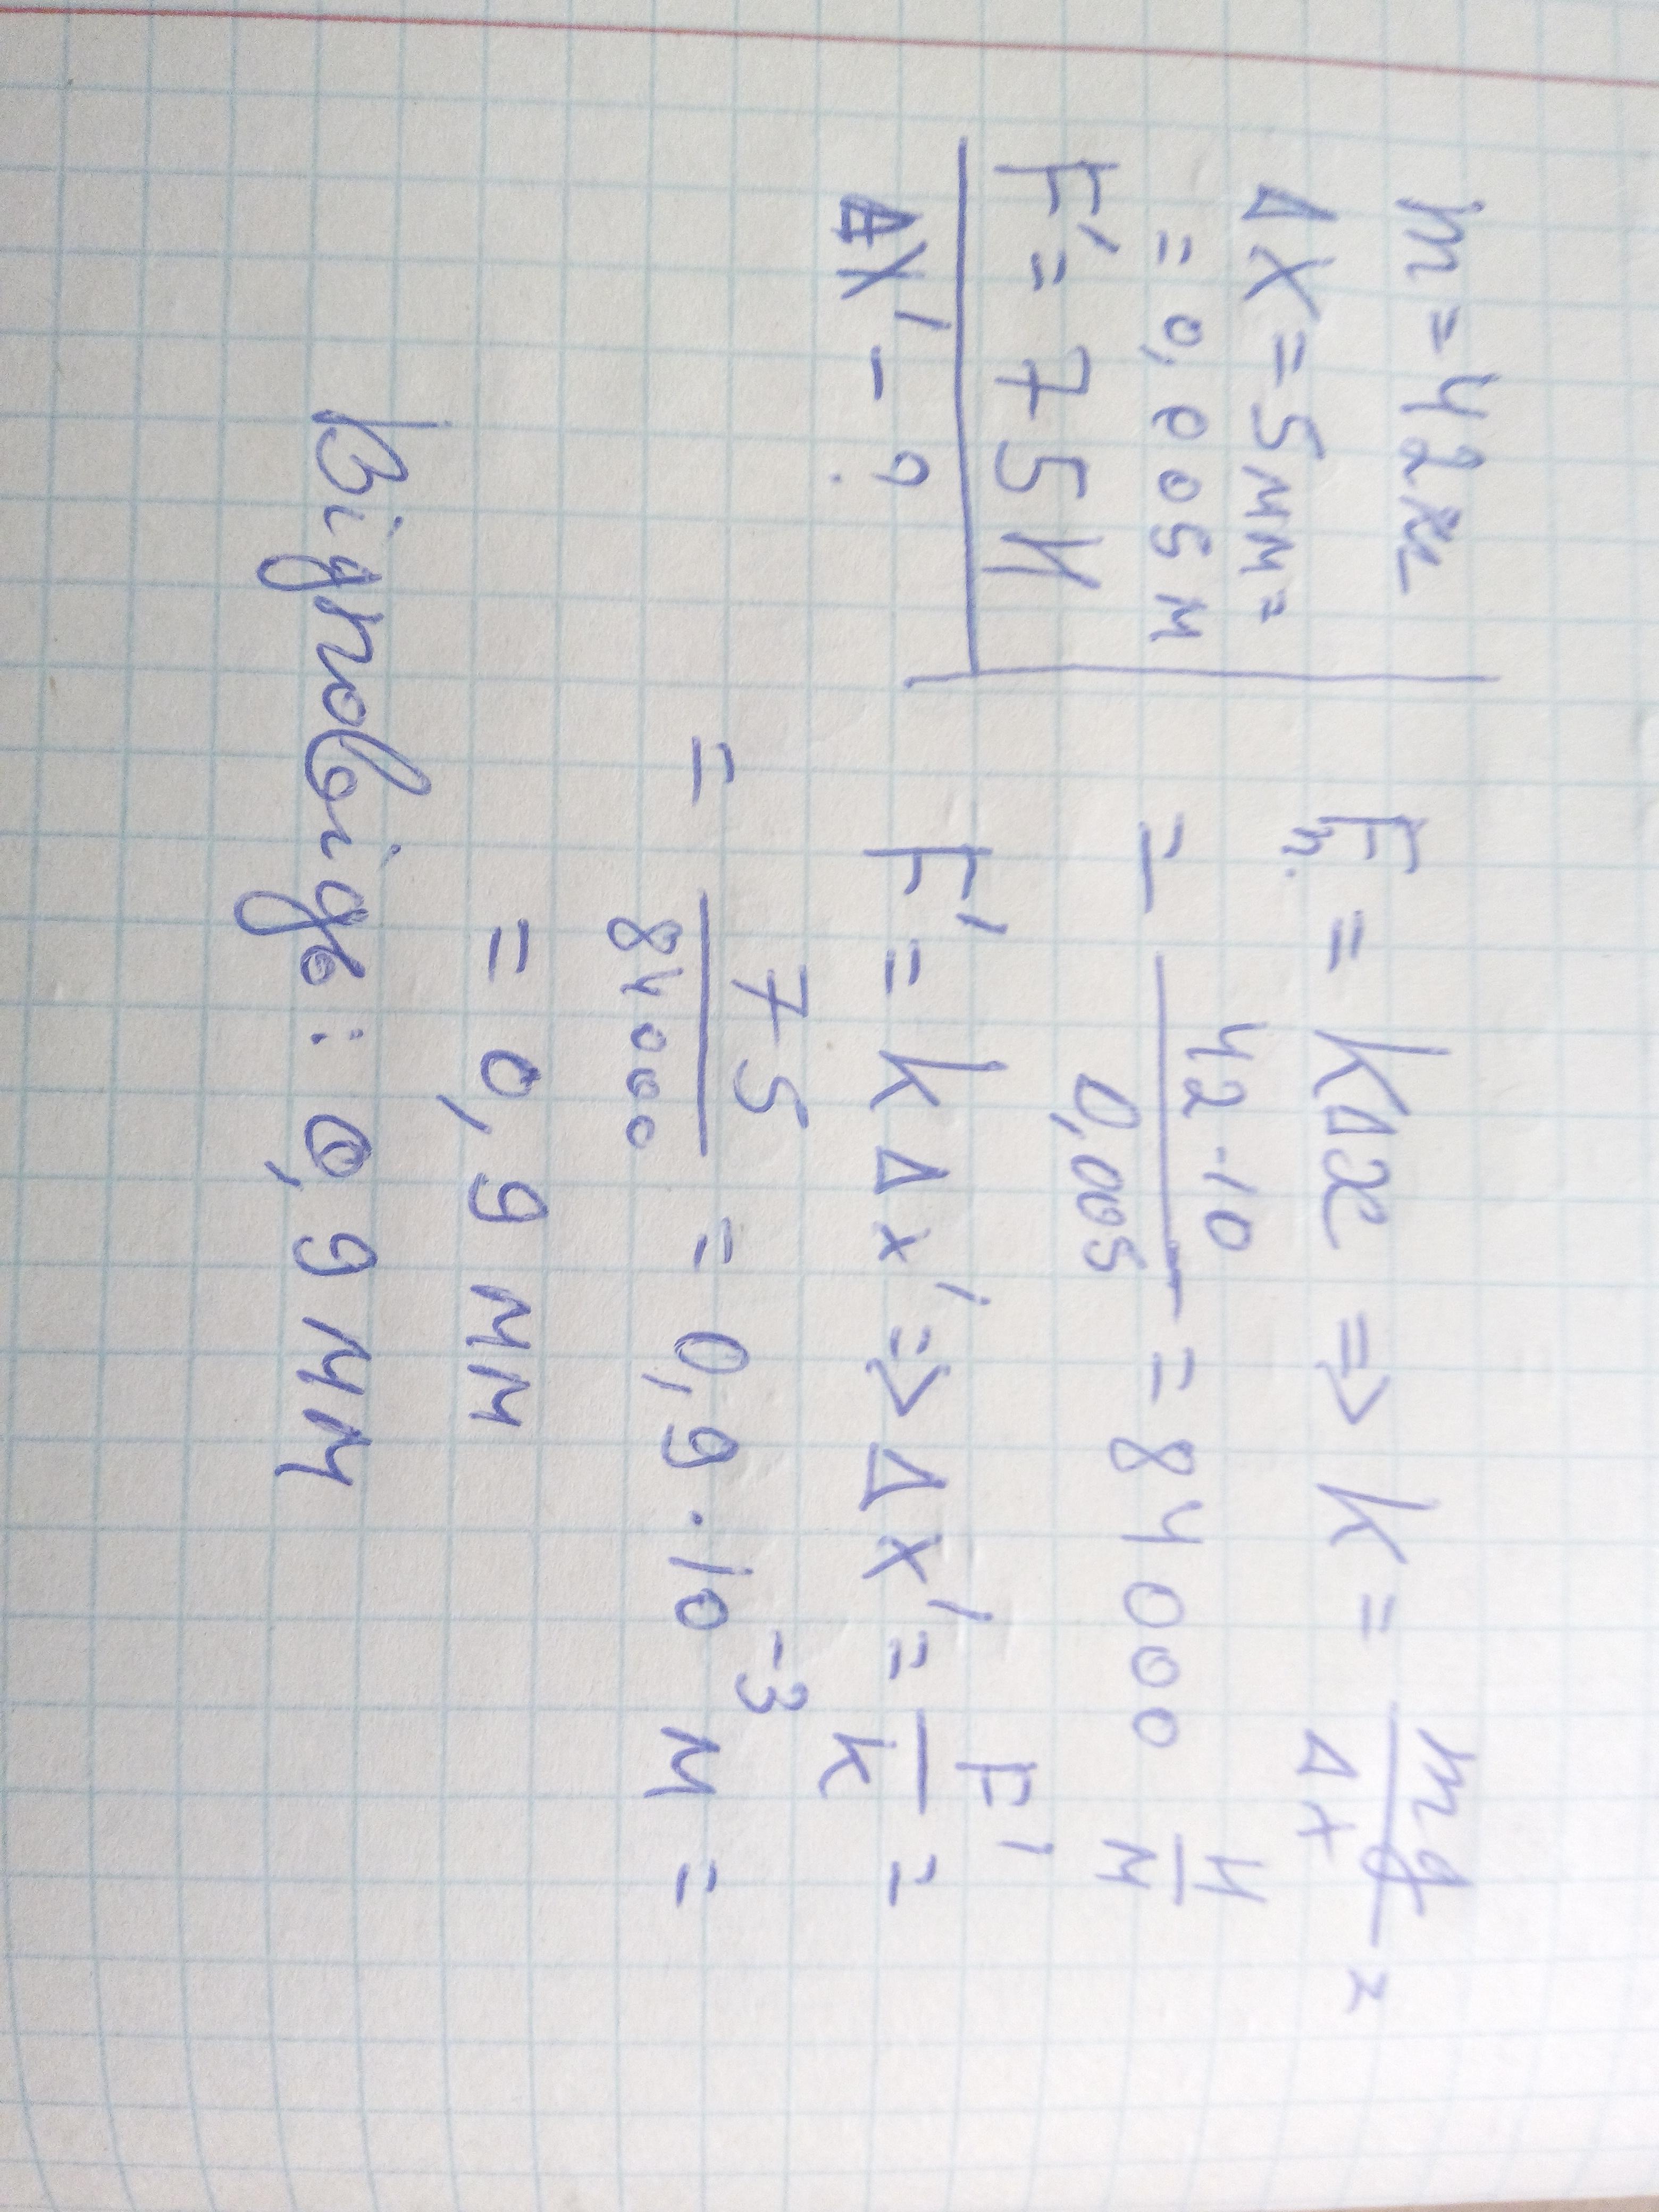 m = 42 кг
ΔX = 5 мм =
= 0,005 м
F' = 75 Н
ΔX' - ?
Fп. = kΔx => k = mg/Δx =
= 42·10/0,005 = 84000 Н/м
F' = kΔx' => Δx' = F'/k =
= 75/84000 = 0,9·10⁻³ м =
= 0,9 мм
Відповідь: 0,9 мм